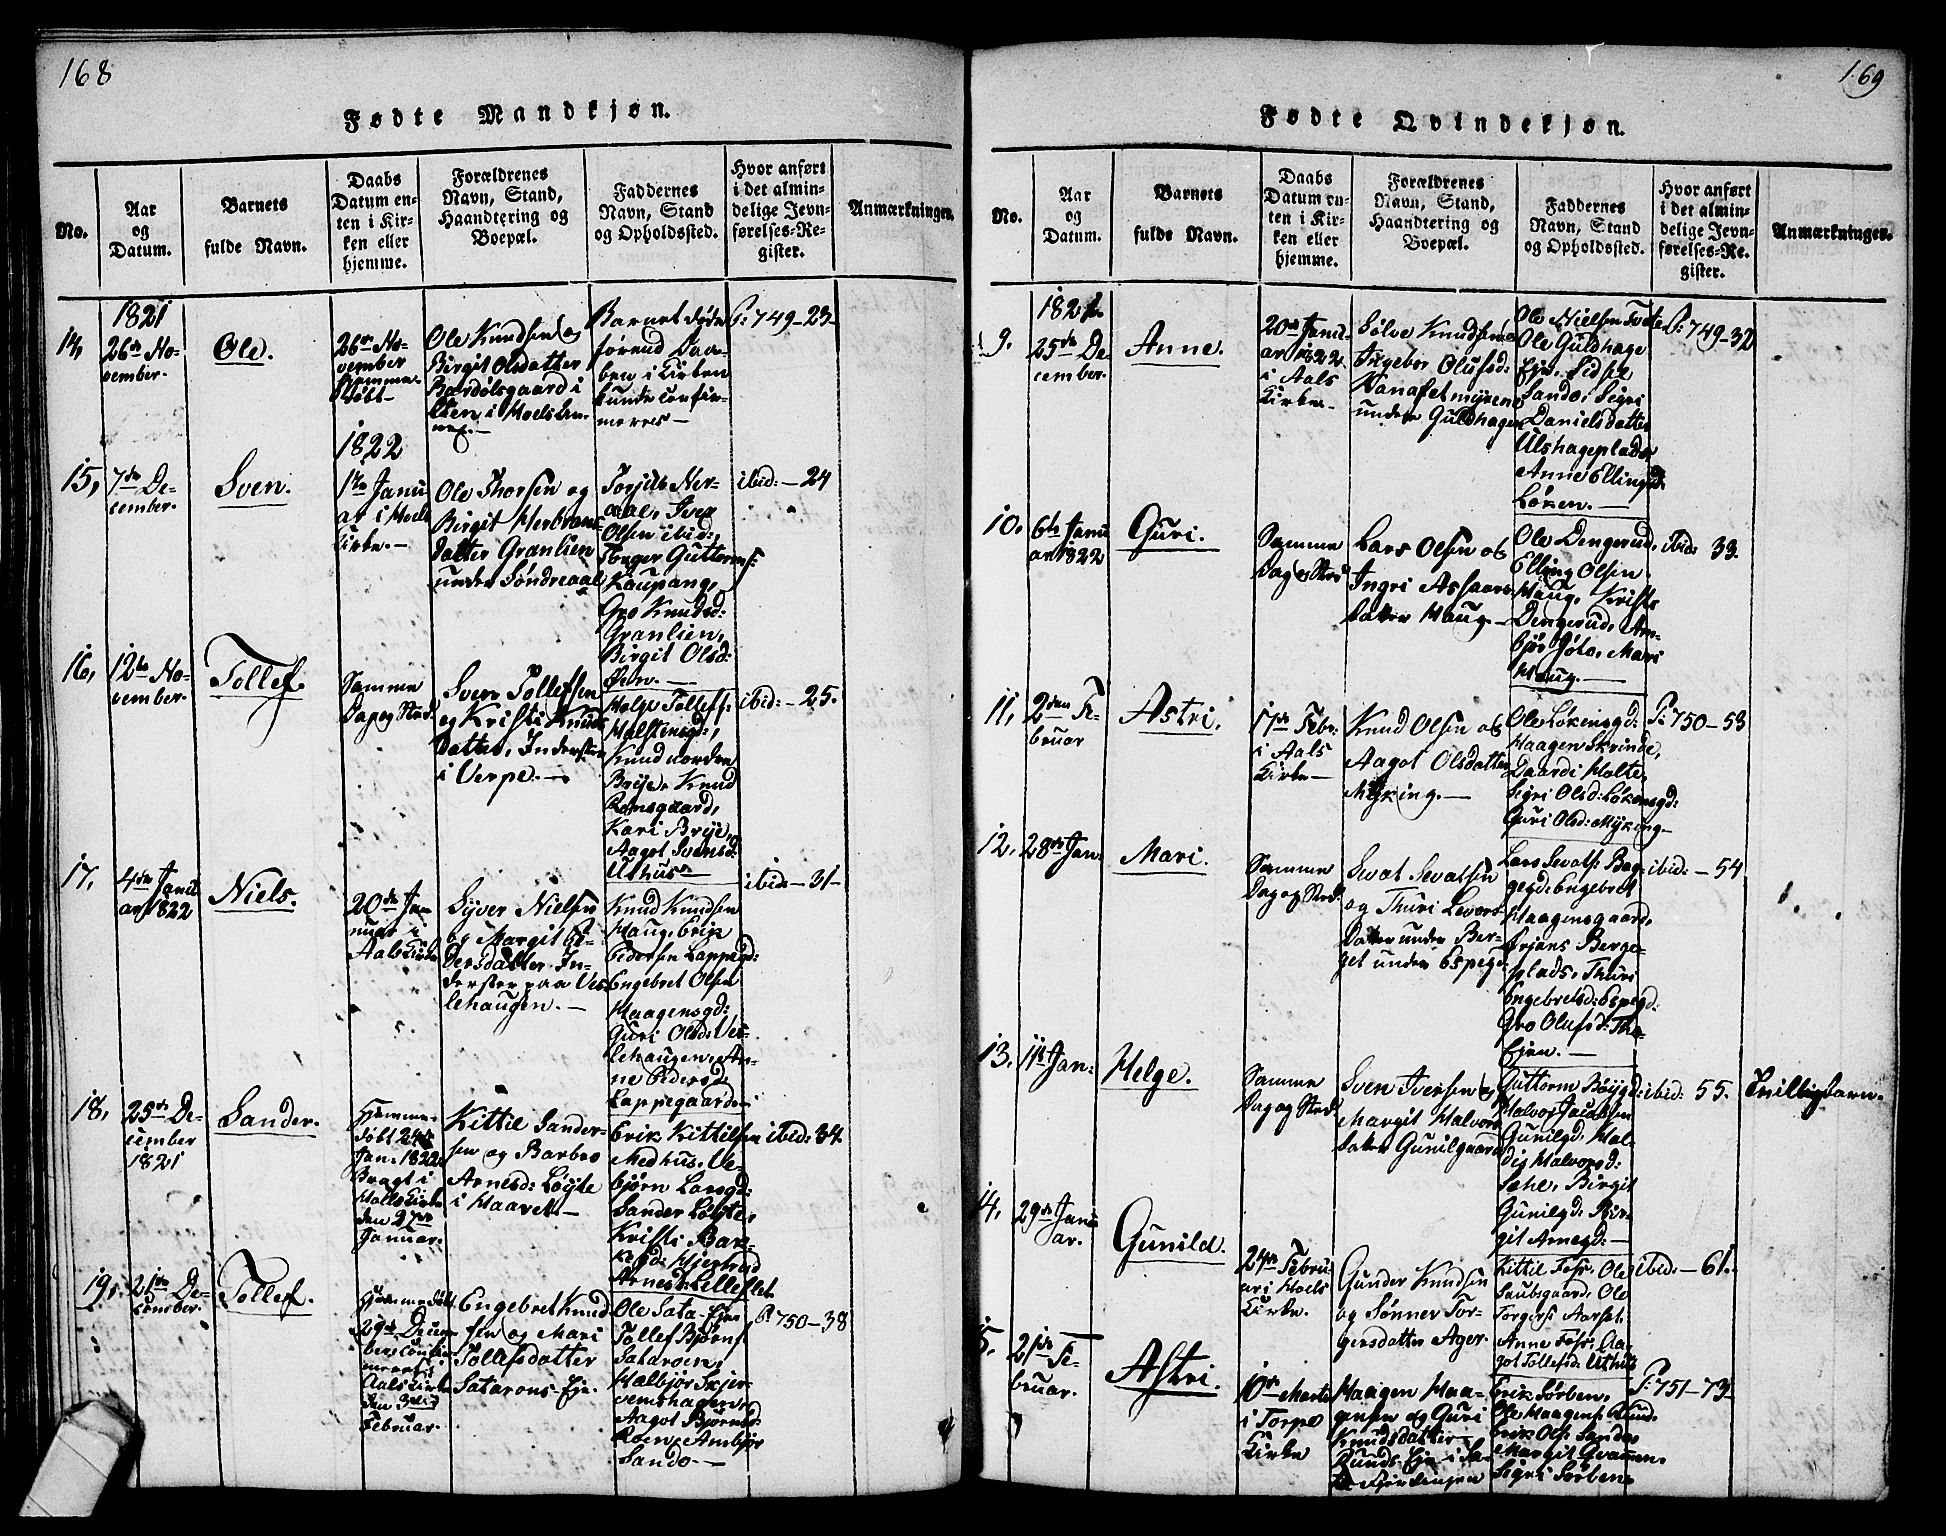 168
Fødte Mandkjøn.
No.
Aar
og
Datum.
Barnets
fulde Navn.
Daabs
Datum en-
ten i Kir-
ken eller
hjemme.
Forældrenes
Navn, Stand,
Haandtering og
Boepæl.
Faddernes
Navn, Stand
og Opholdssted.
Hvor anført
i det almin-
delige Jevn-
førelses-Re-
gister.
Anmærkninger.
14,
1821
26de No-
vember.
Ole.
26de No-
vember
hjemme-
døbt-
Ole Knudsen og
Birgit Olsdatter
Bardølsgaard i
i Hoels An-
nex.-
Barnet døde
førend Daa-
ben i Kirken
kunde confir-
meres-
P: 749-23-
15,
7de De-
cember.
Sven.
1822
1ste Janu
ar i Hoels
Kirke.-
Ole Thorsen og
Birgit Herbrans-
datter Granlien
under Søndreaal
Torjels Ner-
aal, Iver
Olsen ibid:,
Torger Guttormsf:
Kaupang,
Gro Knudsd:
Granlien,
Birgit Olsd:
Øen.-
ibid:-24
16,
12te No-
vember.
Tollef.
Samme
Dag og Sted.
Sven Tollefsen
og Kristi Knuds
datter, Inderster
i Verpe.-
Helge Tollefs:
Halstensgd:,
Knud nordre
Brye, Knud
Ronsgaard,
Kari Brye,
Aagot Svensd:
Uthus-
ibid:-25.
17,
4de Janu
ar 1822
Niels.
20de Ja-
nuar i
Aals Kirke
Syver Nielsen
og Margit Pe-
dersdatter In-
derster paa Ves-
lehaugen.-
Knud Knudsen
Haug, Erik
Pedersen Lappegd:
Engebret Olsen
Haagensgd:
Guri Olsd: Ves-
lehaugen, An-
ne Pedersd:
Lappegaarden
ibid-31-
18,
25de De-
cember
1821
Sander.
Hjemme-
døbt 24de
Jan. 1822.
Bragt i
Hoels Kirke
den 27de
Januar.
Kittil Sander-
sen og Barbro
Arnesd: Løyte
i Haavet.-
Erik Kittilsen
Medhus, Ve-
bjørn Larsgd:
Sander Løyte,
Kristi Bak-
kegd: Hjertrud
Arnesd: Lilleslet
ibid: 34.
19,
21de De-
cember.
Tollef.
Hjemmedøbt
29de Decem-
ber confir-
meret i
Aals Kirke
den 3die
Februar.
Engebret Knud
sen og Mari
Tollefsdatter
Satarons-Eje.
Ole Sata-Eje
Tollef Bjørns
Sataroen,
Halbjør Skjer-
vemshagen,
Aagot Bjørnsd:
Roen, Ambjør
Sando.-
P: 750-38
169
Fødte Qvindekjøn.
No.
Aar
og
Datum.
Barnets
fulde Navn.
Daabs
Datum en-
ten i Kir-
ken eller
hjemme.
Forældrenes
Navn, Stand,
Haandtering og
Boepæl.
Faddernes
Navn, Stand
og Opholdssted.
Hvor anført
i det almin-
delige Jevn-
førelses-Re-
gister.
Anmærkninger.
9.
1821
25de De-
cember.
Anne.
20de Janu-
ar 1822
i Aals
Kirke.-
Sølve Knudsen og
Ingebor Olufsd:
under Guldhagen
Ole Nielsen Tvete
Ole Guldhage
Eje, Sidsel
Sando, Sigri
Danielsdatter
Ulshageplads
Anne Ellingsd:
Løken.-
P: 749-32
10.
6te Janu
ar 1822
Guri.
Samme
Dag og Sted
Lars Olsen og
Ingri Assaars-
datter Haug.-
Ole Dengerud,
Elling Olsen
Haug, Kristi
Dengerud, Am-
bjør Jøto, Mari
Haug.-
ibid: 33.
11,
2den Fe-
bruar
Astri.
17de Febr:
i Aals
Kirke-
Knud Olsen og
Aagot Olsdatter
Myking.-
Ole Løkensgd:
Haagen Skrinde,
Daardi Holte,
Sigri Olsd: Løkensgd:
Guri Olsd: Myking-
P: 750-53
12.
28de Jan:
Mari.
Samme
Dag og Sted.
Sevat Sevatsen
og Thuri Levors-
datter under Ber-
get under Espegd
Lars Sevats: Bag-
gegd: Engebret
Haagensgaard,
Ørjans Berge-
plads, Thuri
Engebretsd: Espegd:
Gro Olufsd: Tho-
Ejen.-
ibid:-54
13.
11te Jan:
Helge.
Samme
Dag og Sted
Sven Iversen og
Margit Halvors-
datter Gunilgaard
Guttorm Bøygd:
Halvor Jacobsen
Gunilgd. Hal-
dis Halvorsd:
Sahe, Birgit
Gunilgd, Bir-
git Arnegd:-
ibid: 55.
Tvillingbarn.
14.
29de Janu
ar.
Gunild.
24de Febru
ar i Hoels
Kirke.
Gunder Knudsen
og Sønner Tor-
gersdatter Ager.
Kittil Tofs, Ole
Saubsgaard, Ole
Torgers: Aarset,
Anne Tofs, Aa-
got Tollefsd: Uthus
ibid:-61.
15.
21de Fe-
bruar.
Astri.
10de Marts
i Torpe
Kirke
Haagen Haa-
gensen og Guri
Knudsdatter
Runds-Eje i Sa-
Erik Sørben,
Ole Haagens: Rund.
Erik Ols: Sando
Margit Gvammen.
Sigri Sørben.
P: 751-73-